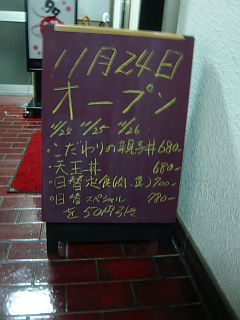 11月24日
オープン
11/24 11/25 11/26
・こだわりの親子丼 680-
・天玉丼 680-
・日替定食(肉、魚)700-
・日替スペシャル 780-
を50円引き